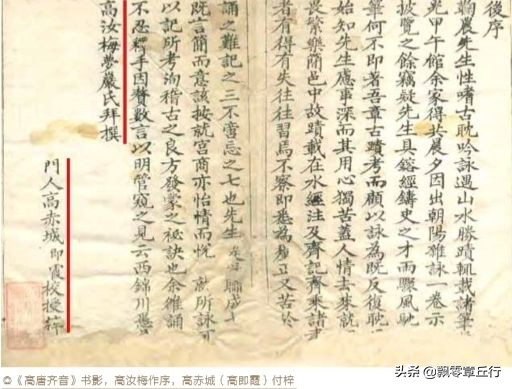 後序
鞠農先生性嗜古耽吟詠遇山水勝蹟輒裁諸筆
光甲午館余家得共晨夕因出朝陽雜詠一卷示
披覽之餘竊疑先生具鎔經鑄史之才而驟風馳
何不即著吾章古蹟考而顧以詠為旣反復耽
始知先生慮事深而其用心獨苦蓋人情去來就
畏繁樂簡邑中故蹟載在水經注及齊記齊乘諸
者有得有失往往習焉不察即悉為立又苦於
誦之難記之三不啻忘之七也先生
旣言簡而意該按就宮商亦怡情而悦 就所詠
以記所考洵稽古之良方發蒙之秘訣也余雒誦
不忍釋手因贅數言以明管窺之見云西錦川
高汝梅夢巖氏拜撰
門人高赤城即霞校授梓
◎《高唐齐音》书影，高汝梅作序，高赤城（高即霞）付梓
头条 @飘零章丘行